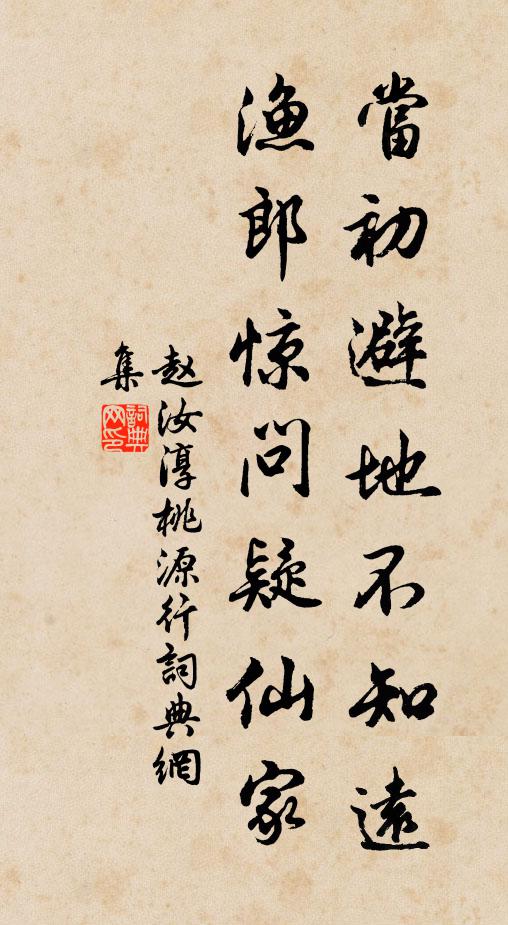 當初避地不知遠
漁郎惊問疑仙家
赵汝淳桃源行詞典網
集
詞典网印